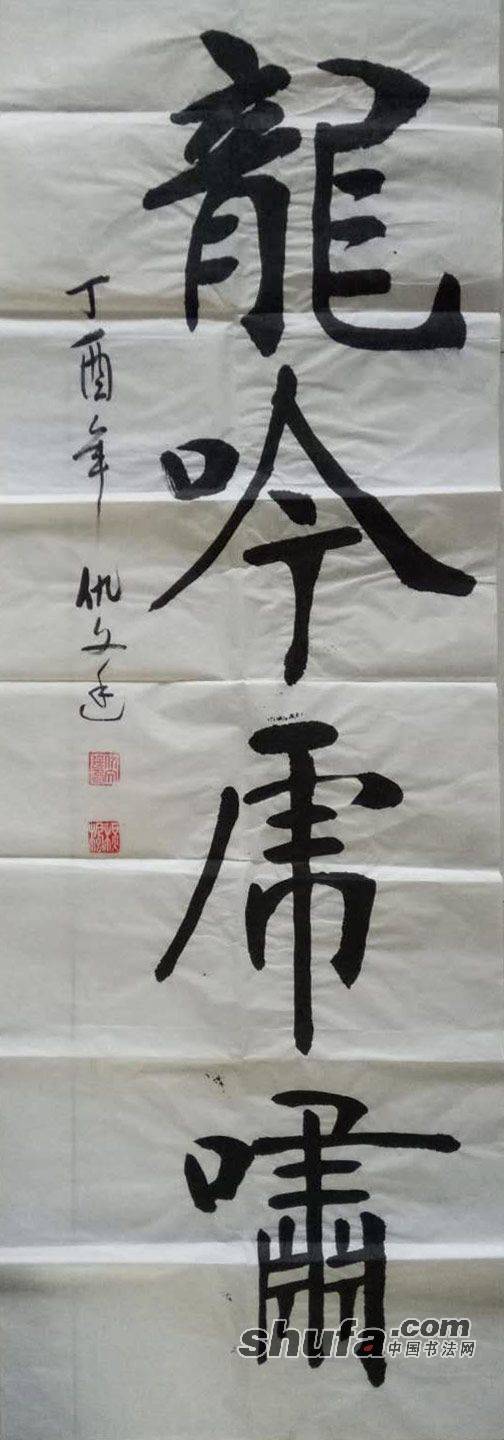 龍吟虎嘯
丁酉年 仇文
shufa.com
中国书法网